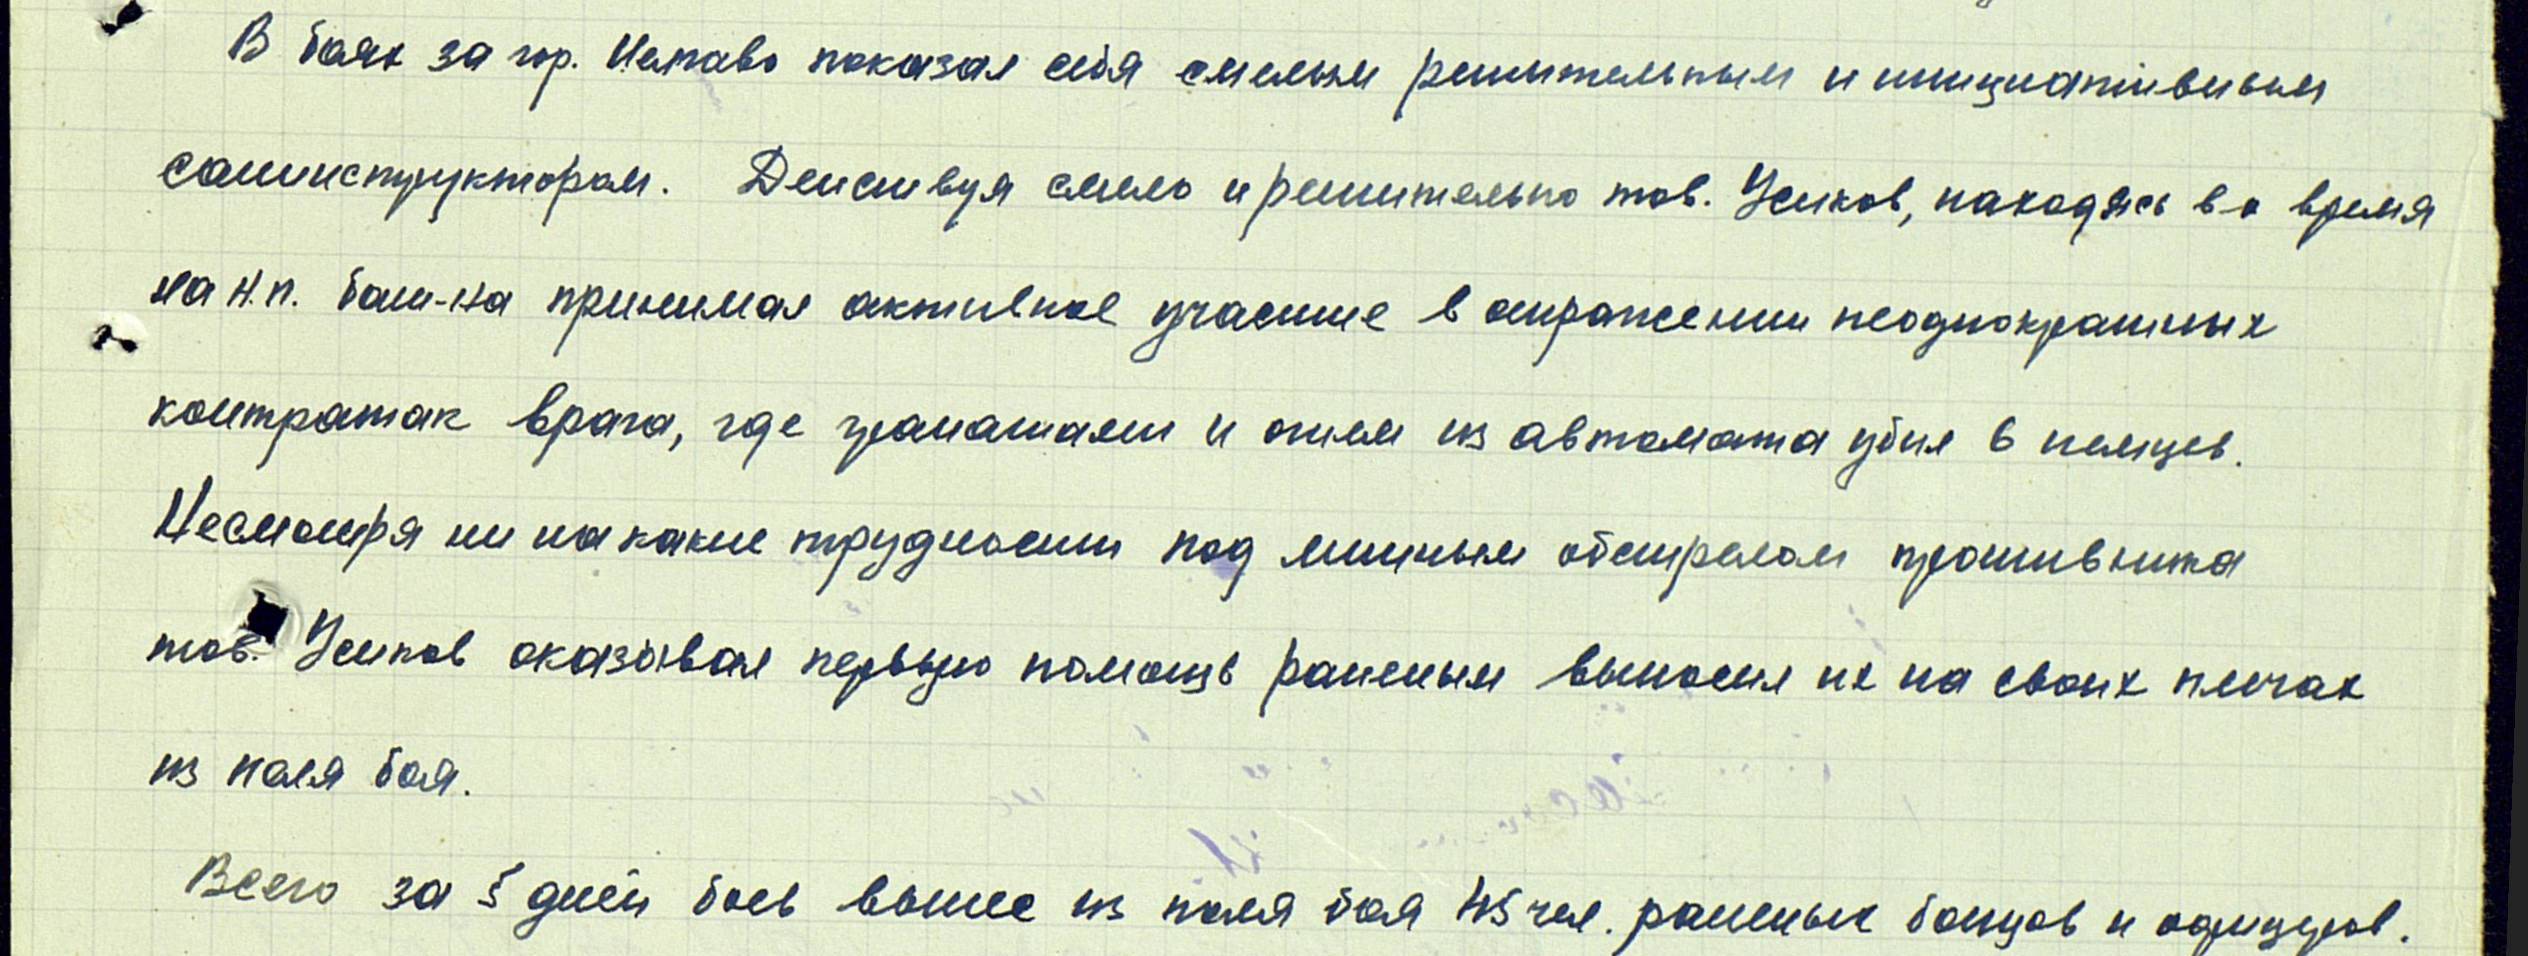 В боях за гор. Непаво показал себя смелым решительным и инициативным
санинструктором. Действуя смело и решительно тов. Усиков, находясь во время
на н.п. бат-на принимал активное участие в отражении неоднократных
контратак врага, где гранатами и огнем из автомата убил 6 немцев.
Несмотря ни на какие трудности под минным обстрелом противника
тов. Усиков оказывал первую помощь раненым выносил их на своих плечах
из поля боя.
Всего за 5 дней боев вынес из поля боя 45 чел. раненых бойцов и офицеров.